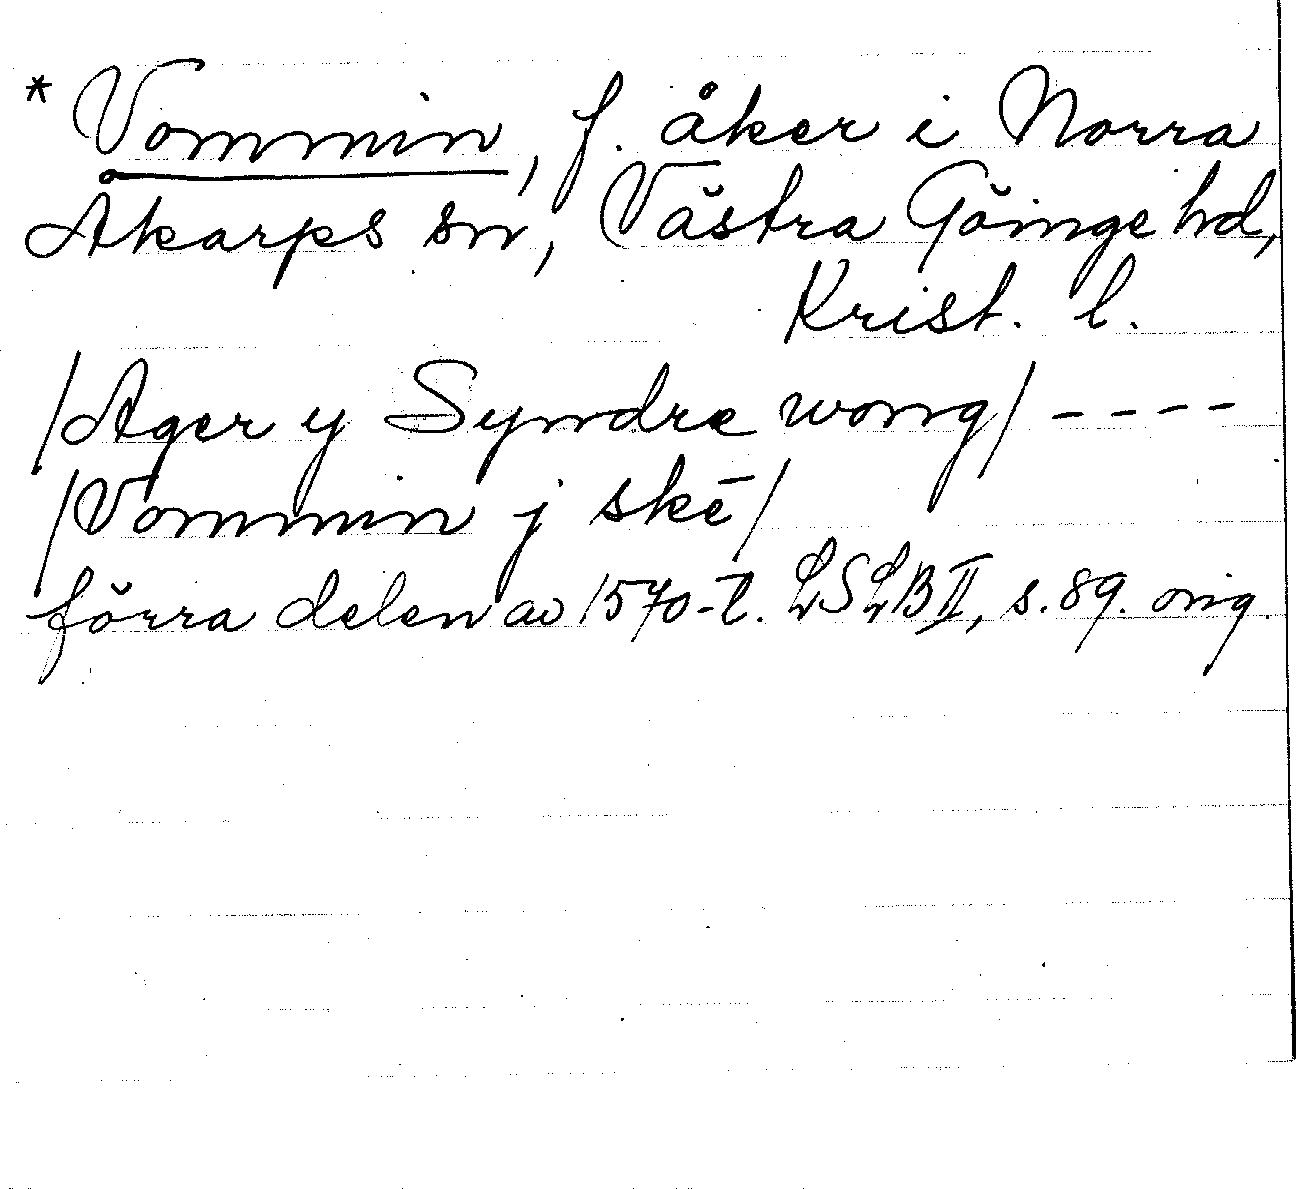 *Vommin, f. åker i Norra
Åkarps sn, Västra Göinge hd,
Krist. l.
/Ager y Syndre wong/ ----
/Vommin j skē/
förra delen av 1570-t. LSLB II, s. 89. orig.